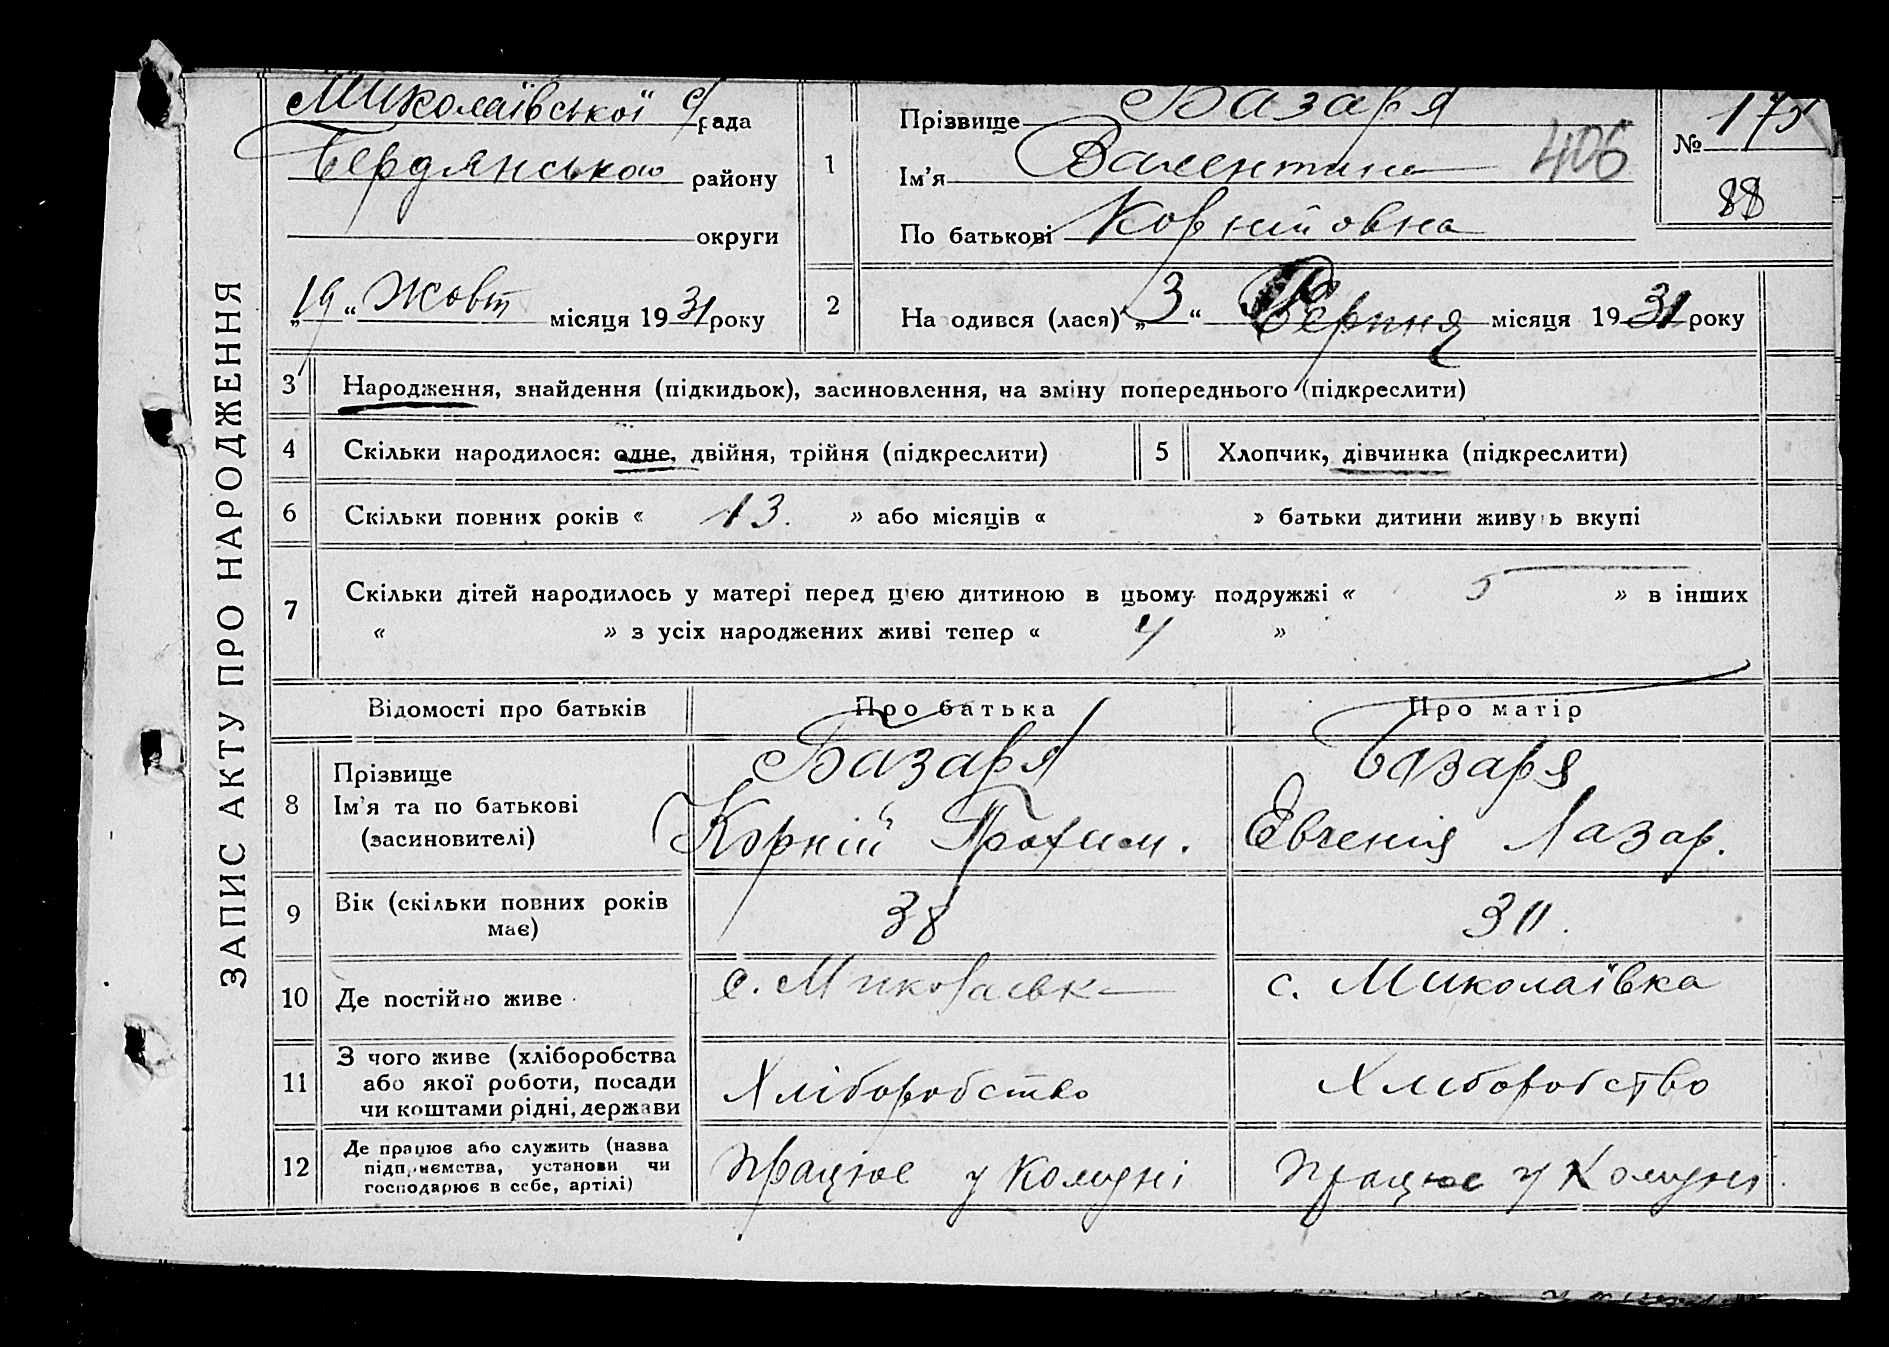 ЗАПИС АКТУ ПРО НАРОДЖЕННЯ
Миколаївської с/рада
Бердянського району
округи
„19“ Жовт місяця 1931 року
1 Прізвище Базаря
Ім'я Валентина 406
По батькові Корніїовна
№ 175
88
2 На одився (лася) „3“ Серпня місяця 1931 року
3 Народження, знайдення (підкидьок), засиновлення, на зміну попереднього (підкреслити)
4 Скільки народилося: одне, двійня, трійня (підкреслити) 5 Хлопчик, дівчинка (підкреслити)
6 Скільки повних років « 13. » або місяців « » батьки дитини живуть вкупі
7 Скільки дітей народилось у матері перед цією дитиною в цьому подружжі « 5 » в інших
« » з усіх народжених живі тепер « 4 »
Відомості про батьків Про батька Про матір
8 Прізвище Базаря Базаря
Ім'я та по батькові Корній Трохим. Євгенія Лазар.
(засиновителі)
9 Вік (скільки повних років має) 38 30.
10 Де постійно живе с. Миколаївка с. Миколаївка
11 З чого живе (хліборобства
або якої роботи, посади Хліборобство Хліборобство
чи коштами рідні, держави
12 Де працює або служить (назва
підприємства, установи чи Працює у Комуні Працює у Комуні
господарює в себе, артілі)